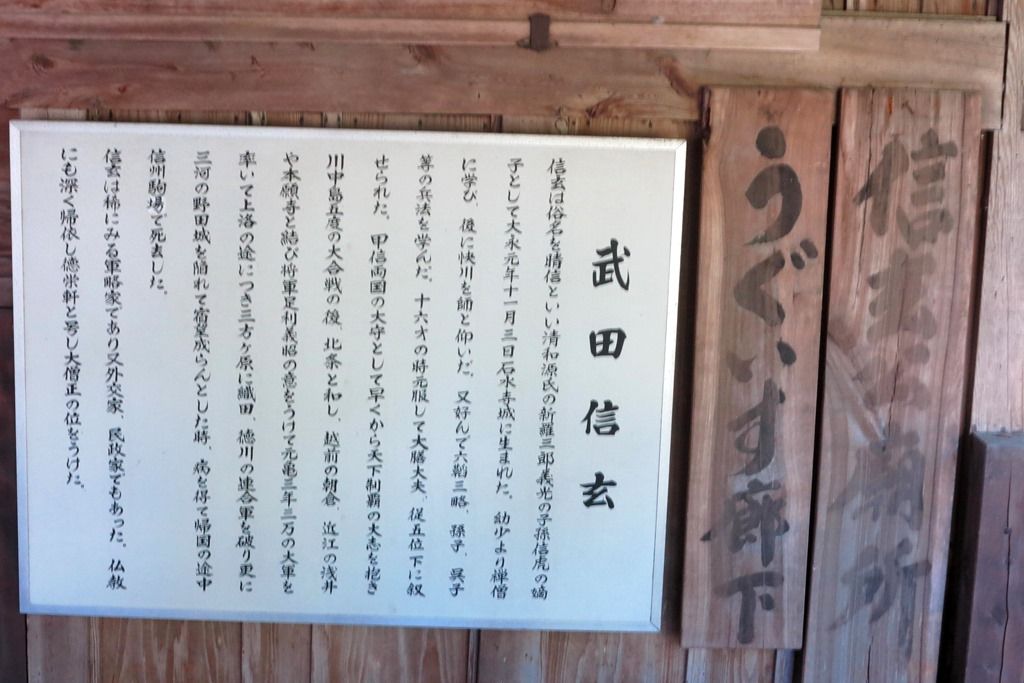 信玄公廟所
うぐいす廊下
武田信玄
信玄は俗名を晴信といい清和源氏の新羅三郎義光の子孫信虎の嫡
子として大永元年十一月三日石水寺城に生まれた。幼少より禅僧
に学び、後に快川を師と仰いだ。又好んで六韜三略、孫子、呉子
等の兵法を学んだ。十六才の時元服して大膳大夫、従五位下に叙
せられた。甲信両国の大守として早くから天下制覇の大志を抱き
川中島五度の大合戦の後、北条と和し、越前の朝倉、近江の浅井
や本願寺と結び将軍足利義昭の意をうけて元亀三年三万の大軍を
率いて上洛の途につき三方ヶ原に織田、徳川の連合軍を破り更に
三河の野田城を陥れて宿望成らんとした時、病を得て帰国の途中
信州駒場で死去した。
信玄は稀にみる軍略家であり又外交家、民政家でもあった。仏教
にも深く帰依し徳栄軒と号し大僧正の位をうけた。